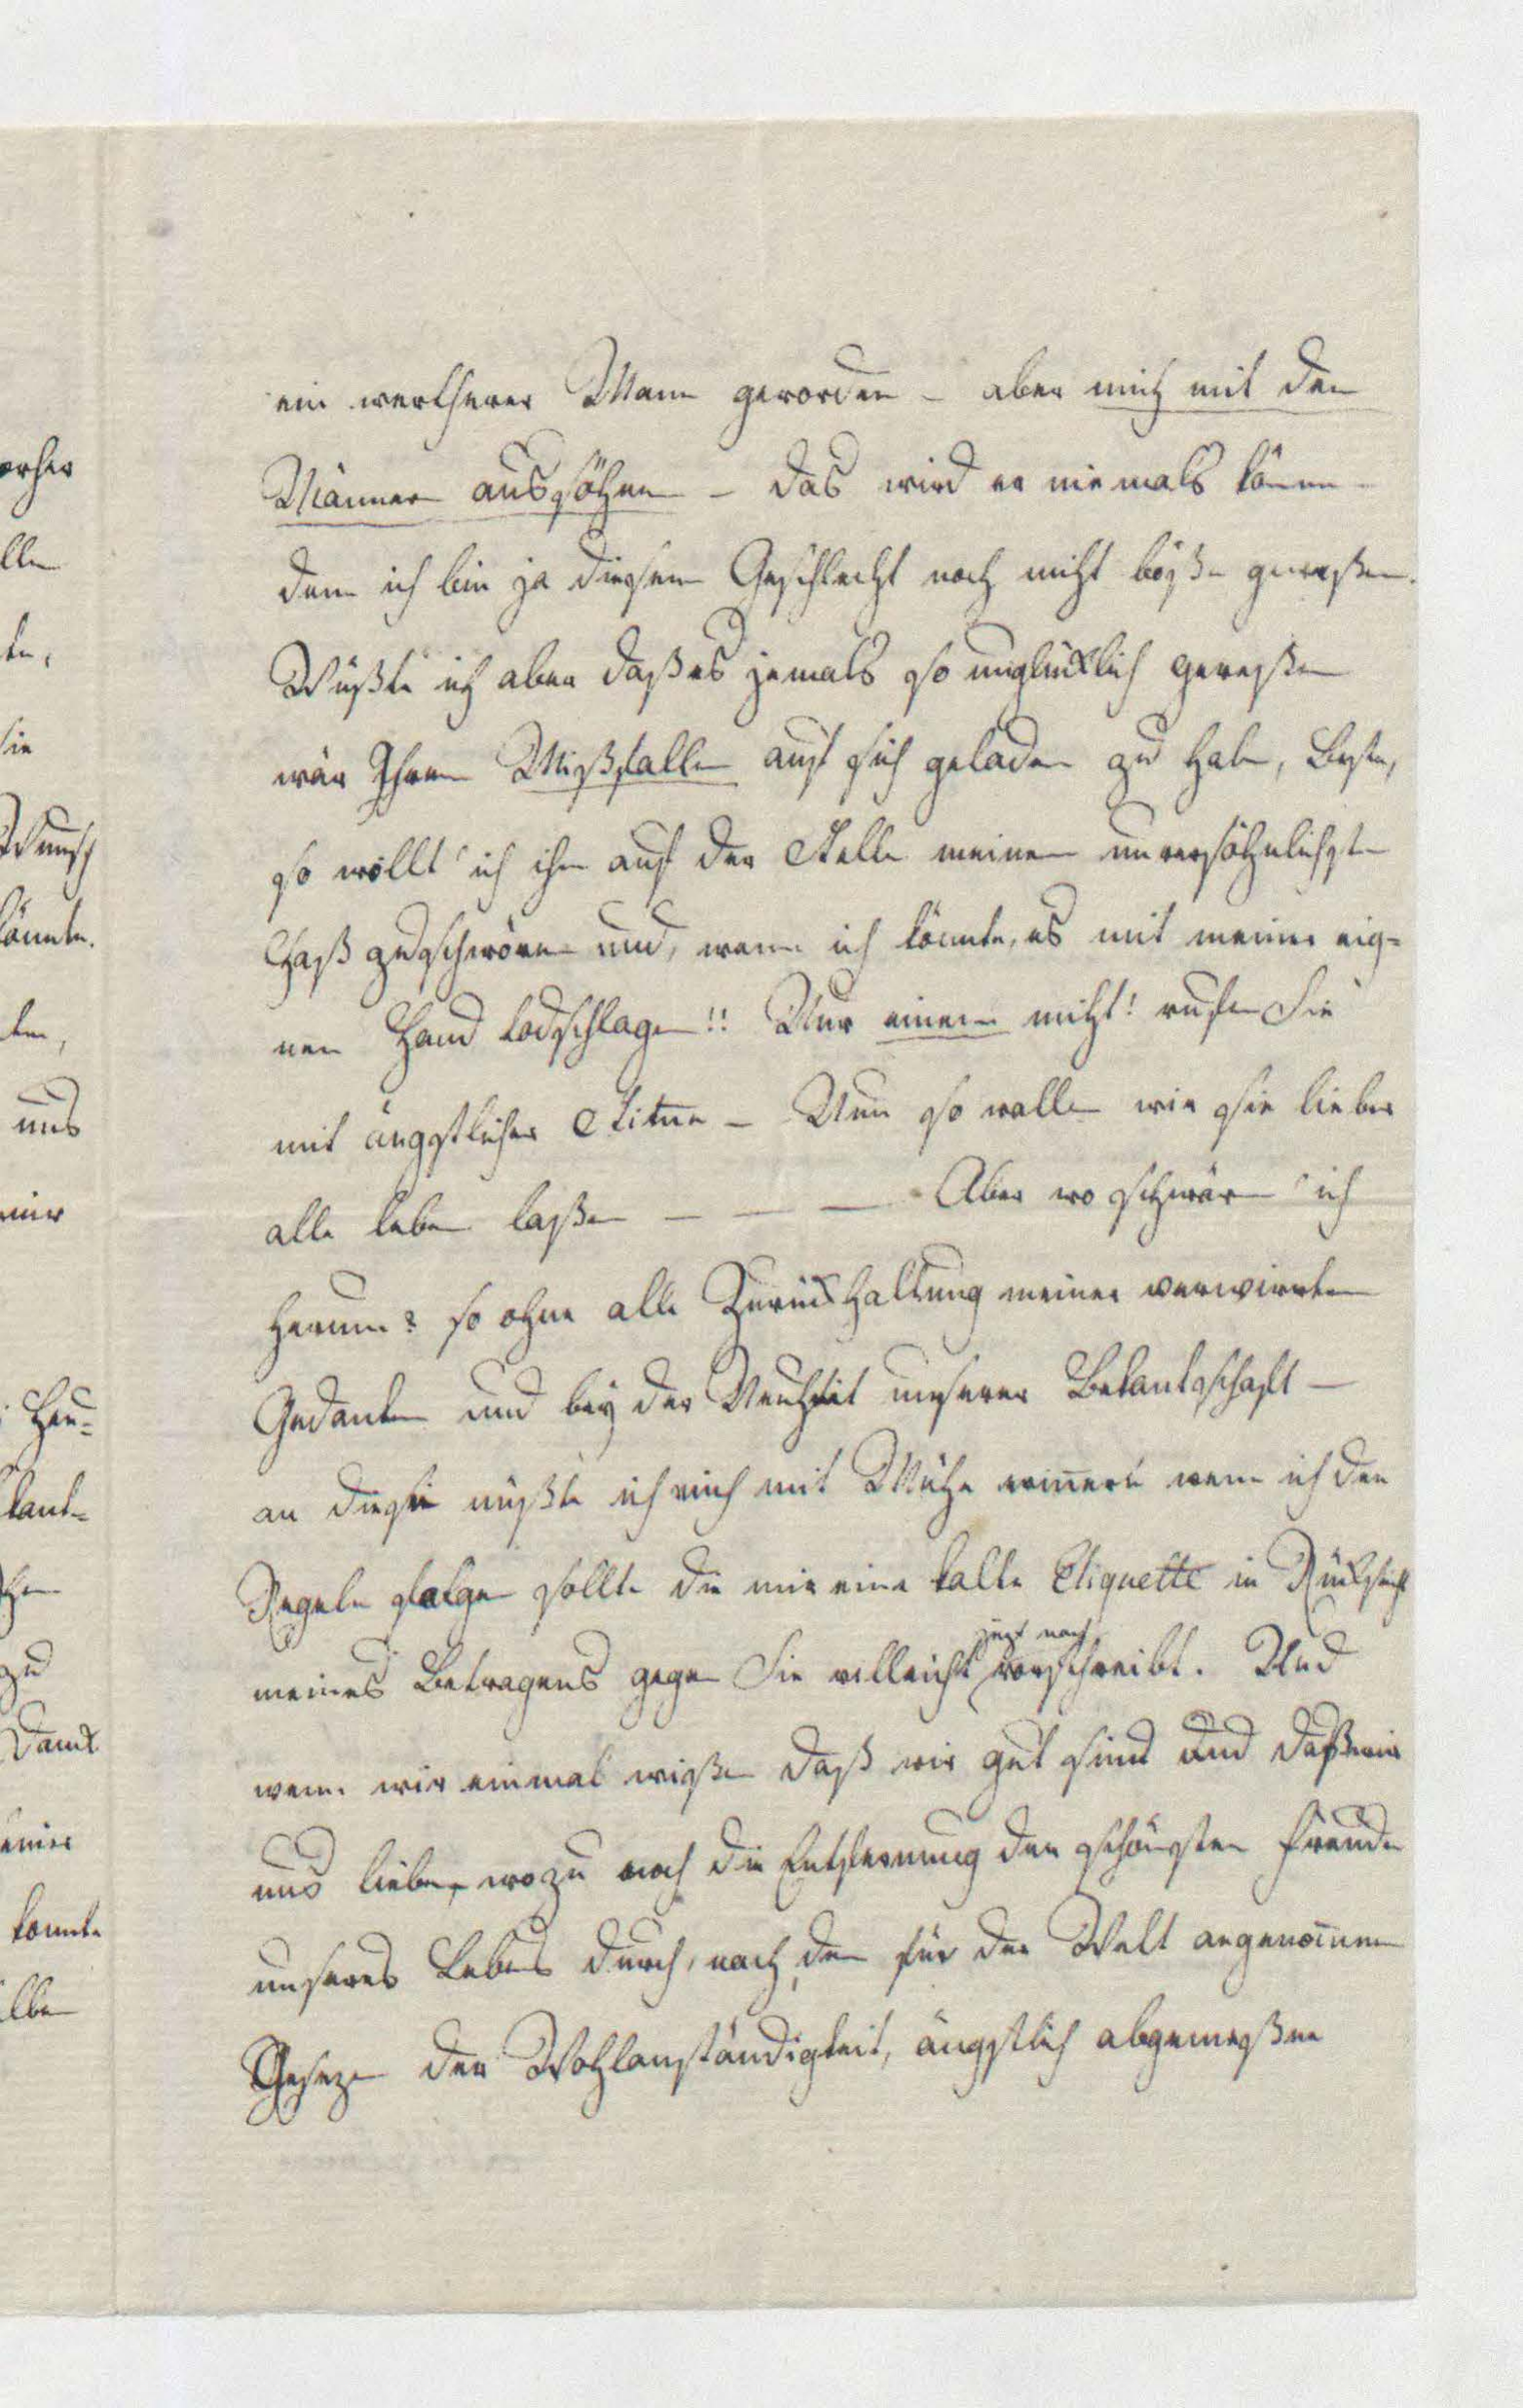 ein wertherer Mann geworden – aber mich mit den
Männern aussöhnen – das wird er niemals können –
denn ich bin ja diesem Geschlecht noch nicht böße geweßen.
Wüßte ich aber daß es jemals so unglücklich geweßen
wär Ihren Mißfallen auf sich geladen zu haben, Beste,
so wollt' ich ihm auf der Stelle meinen unversöhnlichsten
Haß zuschwören und, wenn ich könnte, es mit meiner eig=
nen Hand todschlagen!! Nur einen nicht! rufen Sie
mit ängstlicher Stime – Nun so wollen wir sie lieber
alle leben laßen – – – Aber wo schwärm' ich
herum? so ohne alle Zurückhaltung meiner verwirrten
Gedanken und bey der Neuheit unserer Bekantschaft –
an diese müßte ich mich mit Mühe erinnern wenn ich den
Regeln folgen sollte die mir eine kalte Etiquette in Rücksicht
meines Betragens gegen Sie vielleicht jezt noch vorschreibt. Und
wenn wir einmal wißen daß wir gut sind und daß wir
uns lieben, wozu noch die Entfernung der schönsten Freuden
unseres Lebens durch, nach den für der Welt angenomenen
Gesezen der Wohlanständigkeit, ängstlich abgemeßene
orher
llen
ten,
sie
Wunsch
könnte.
ten,
uns
mir
Her=
kant=
zu
Dank
einer
konnte